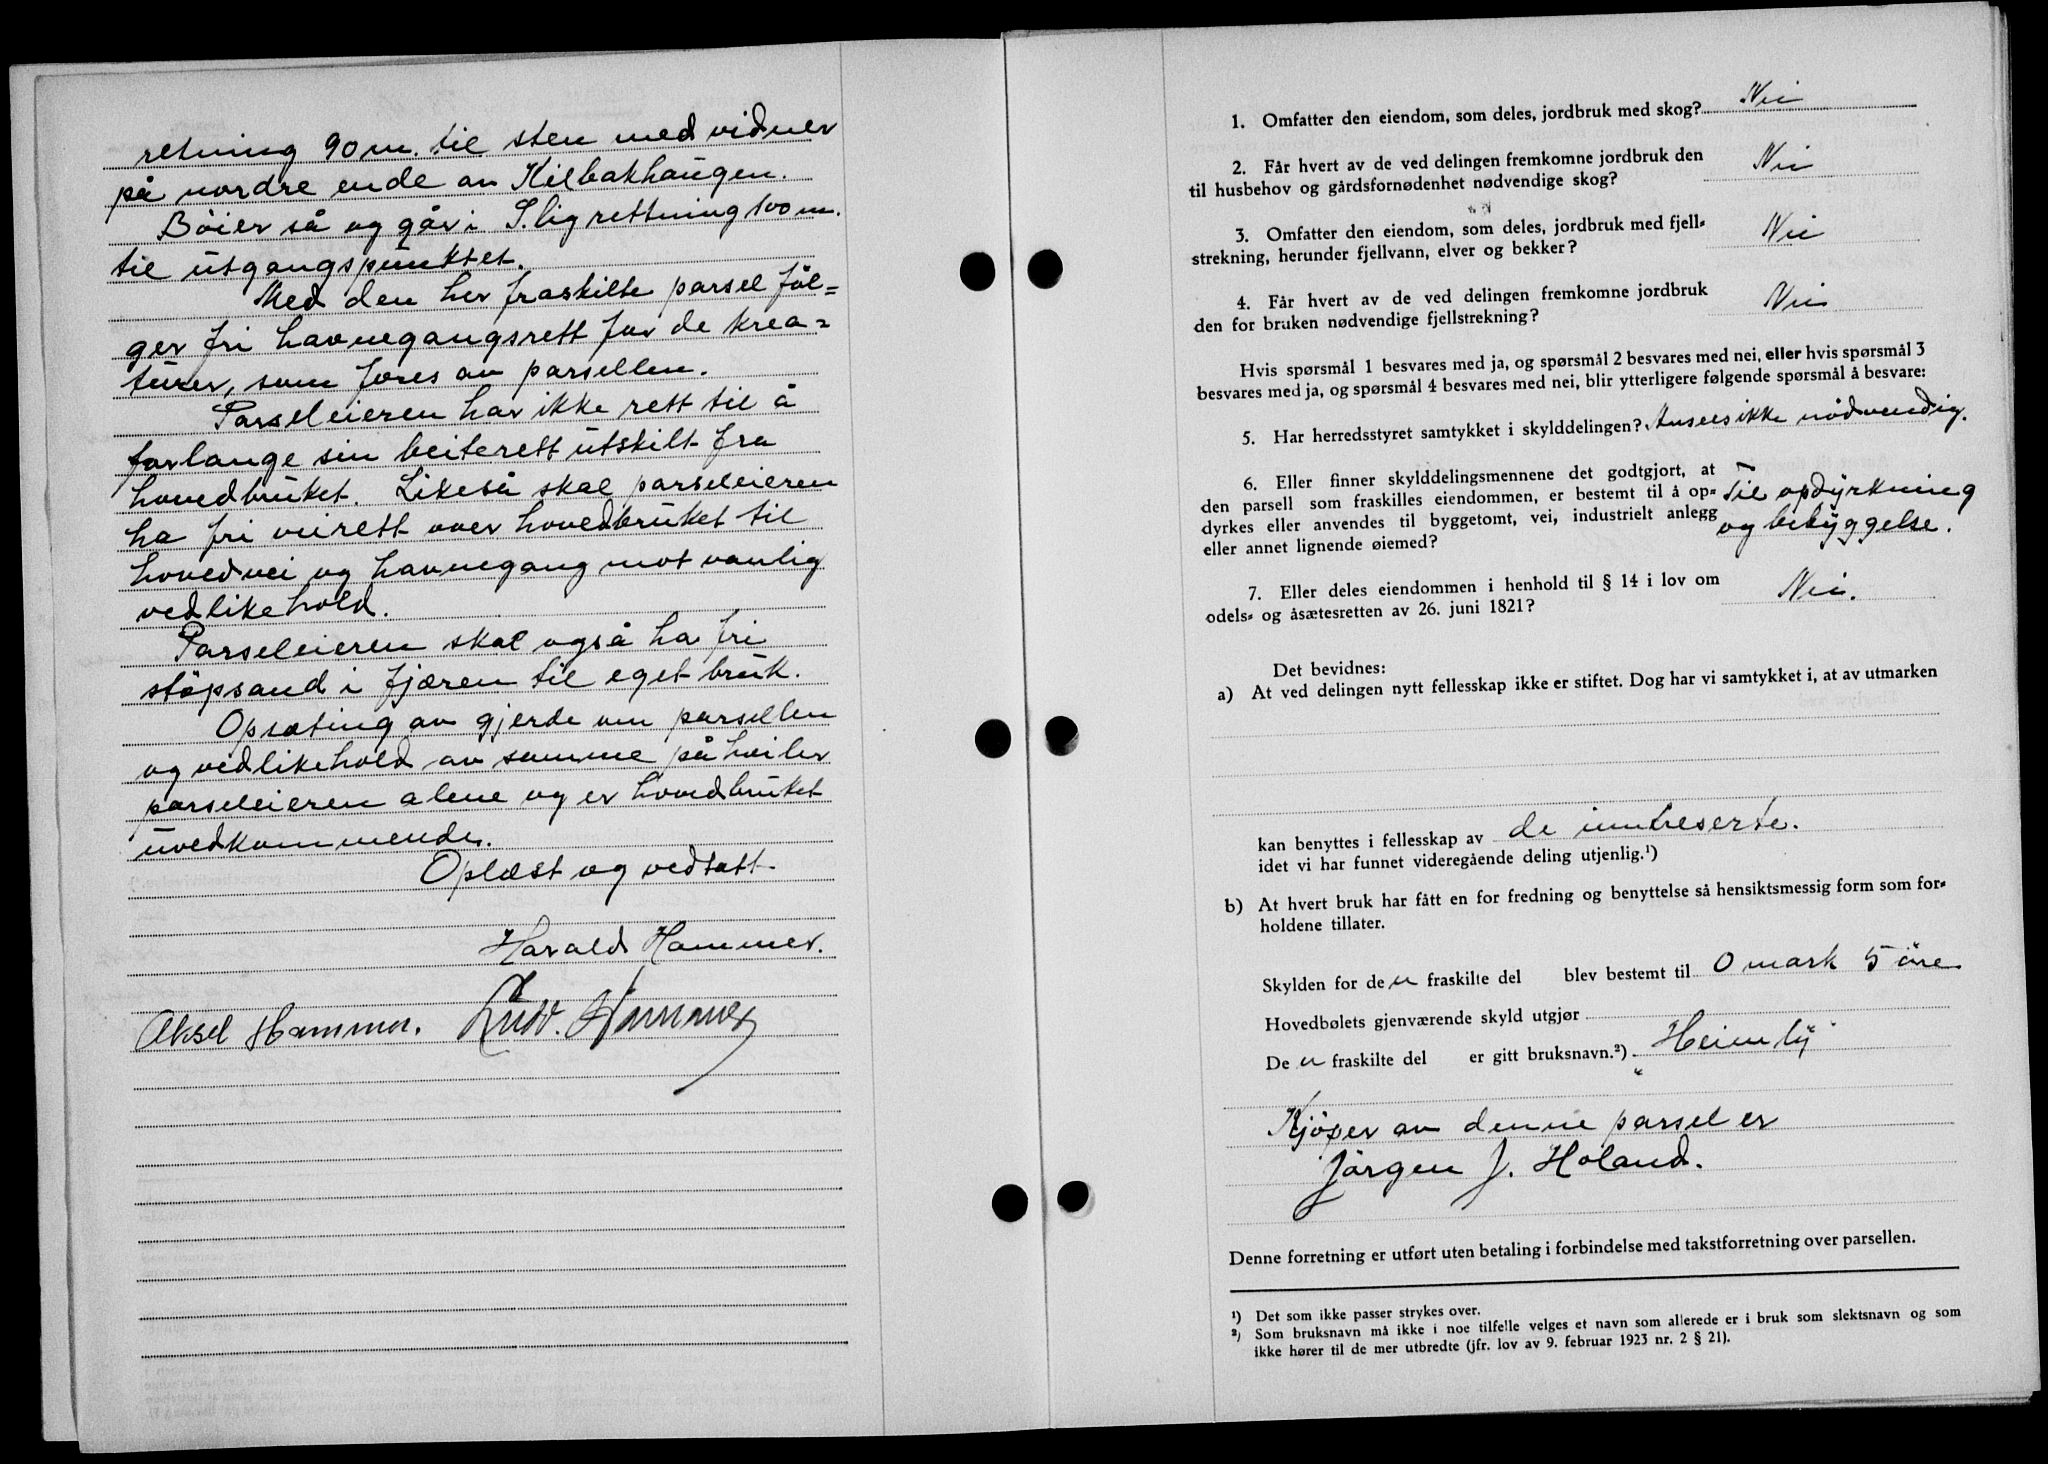 retning 90 m. til sten med vidner
på nordre ende av Kilbakhaugen.
Böier så og går i S.lig rettning 100 m.
til utgangspunktet.
Med den her fraskilte parsel föl=
ger fri havnegangsrett for de krea=
turer, som fores av parsellen.
Parseleieren har ikke rett til å
forlange sin beiterett utskilt fra
hovedbruket. Likeså skal parseleieren
ha fri veirett over hovedbruket til
hovedvei og havnegang mot vanlig
vedlikehold.
Parseleieren skal også ha fri
stöpsand i fjæren til eget bruk.
Opsæting av gjerde om parsellen
og vedlikehold av samme påhviler
parseleieren alene og er hovedbruket
uvedkommende.
Oplæst og vedtatt.
Harald Hammer.
Aksel Hammer. Ludv. Hammer
1. Omfatter den eiendom, som deles, jordbruk med skog? Nei
2. Får hvert av de ved delingen fremkomne jordbruk den
til husbehov og gårdsfornødenhet nødvendige skog? Nei
3. Omfatter den eiendom, som deles, jordbruk med fjell=
strekning, herunder fjellvann, elver og bekker? Nei
4. Får hvert av de ved delingen fremkomne jordbruk
den for bruken nødvendige fjellstrekning? Nei
Hvis spørsmål 1 besvares med ja, og spørsmål 2 besvares med nei, eller hvis spørsmål 3
besvares med ja, og spørsmål 4 besvares med nei, blir ytterligere følgende spørsmål å besvare:
5. Har herredsstyret samtykket i skylddelingen? Ansees ikke nödvendig.
6. Eller finner skylddelingsmennene det godtgjort, at
den parsell som fraskilles eiendommen, er bestemt til å op= Til opdyrkning
dyrkes eller anvendes til byggetomt, vei, industrielt anlegg og bebyggelse.
eller annet lignende øiemed?
7. Eller deles eiendommen i henhold til § 14 i lov om
odels= og åsætesretten av 26. juni 1821? Nei.
Det bevidnes:
a) At ved delingen nytt fellesskap ikke er stiftet. Dog har vi samtykket i, at av utmarken
kan benyttes i fellesskap av de inntreserte.
idet vi har funnet videregående deling utjenlig.¹)
b) At hvert bruk har fått en for fredning og benyttelse så hensiktsmessig form som for=
holdene tillater.
Skylden for den fraskilte del blev bestemt til 0 mark 5 öre
Hovedbølets gjenværende skyld utgjør
Den fraskilte del er gitt bruksnavn.²) Heimly
Kjöper av denne parsel er
Jörgen J. Holand.
Denne forretning er utført uten betaling i forbindelse med takstforretning over parsellen.
¹) Det som ikke passer strykes over.
²) Som bruksnavn må ikke i noe tilfelle velges et navn som allerede er i bruk som slektsnavn og som
ikke hører til de mer utbredte (jfr. lov av 9. februar 1923 nr. 2 § 21).